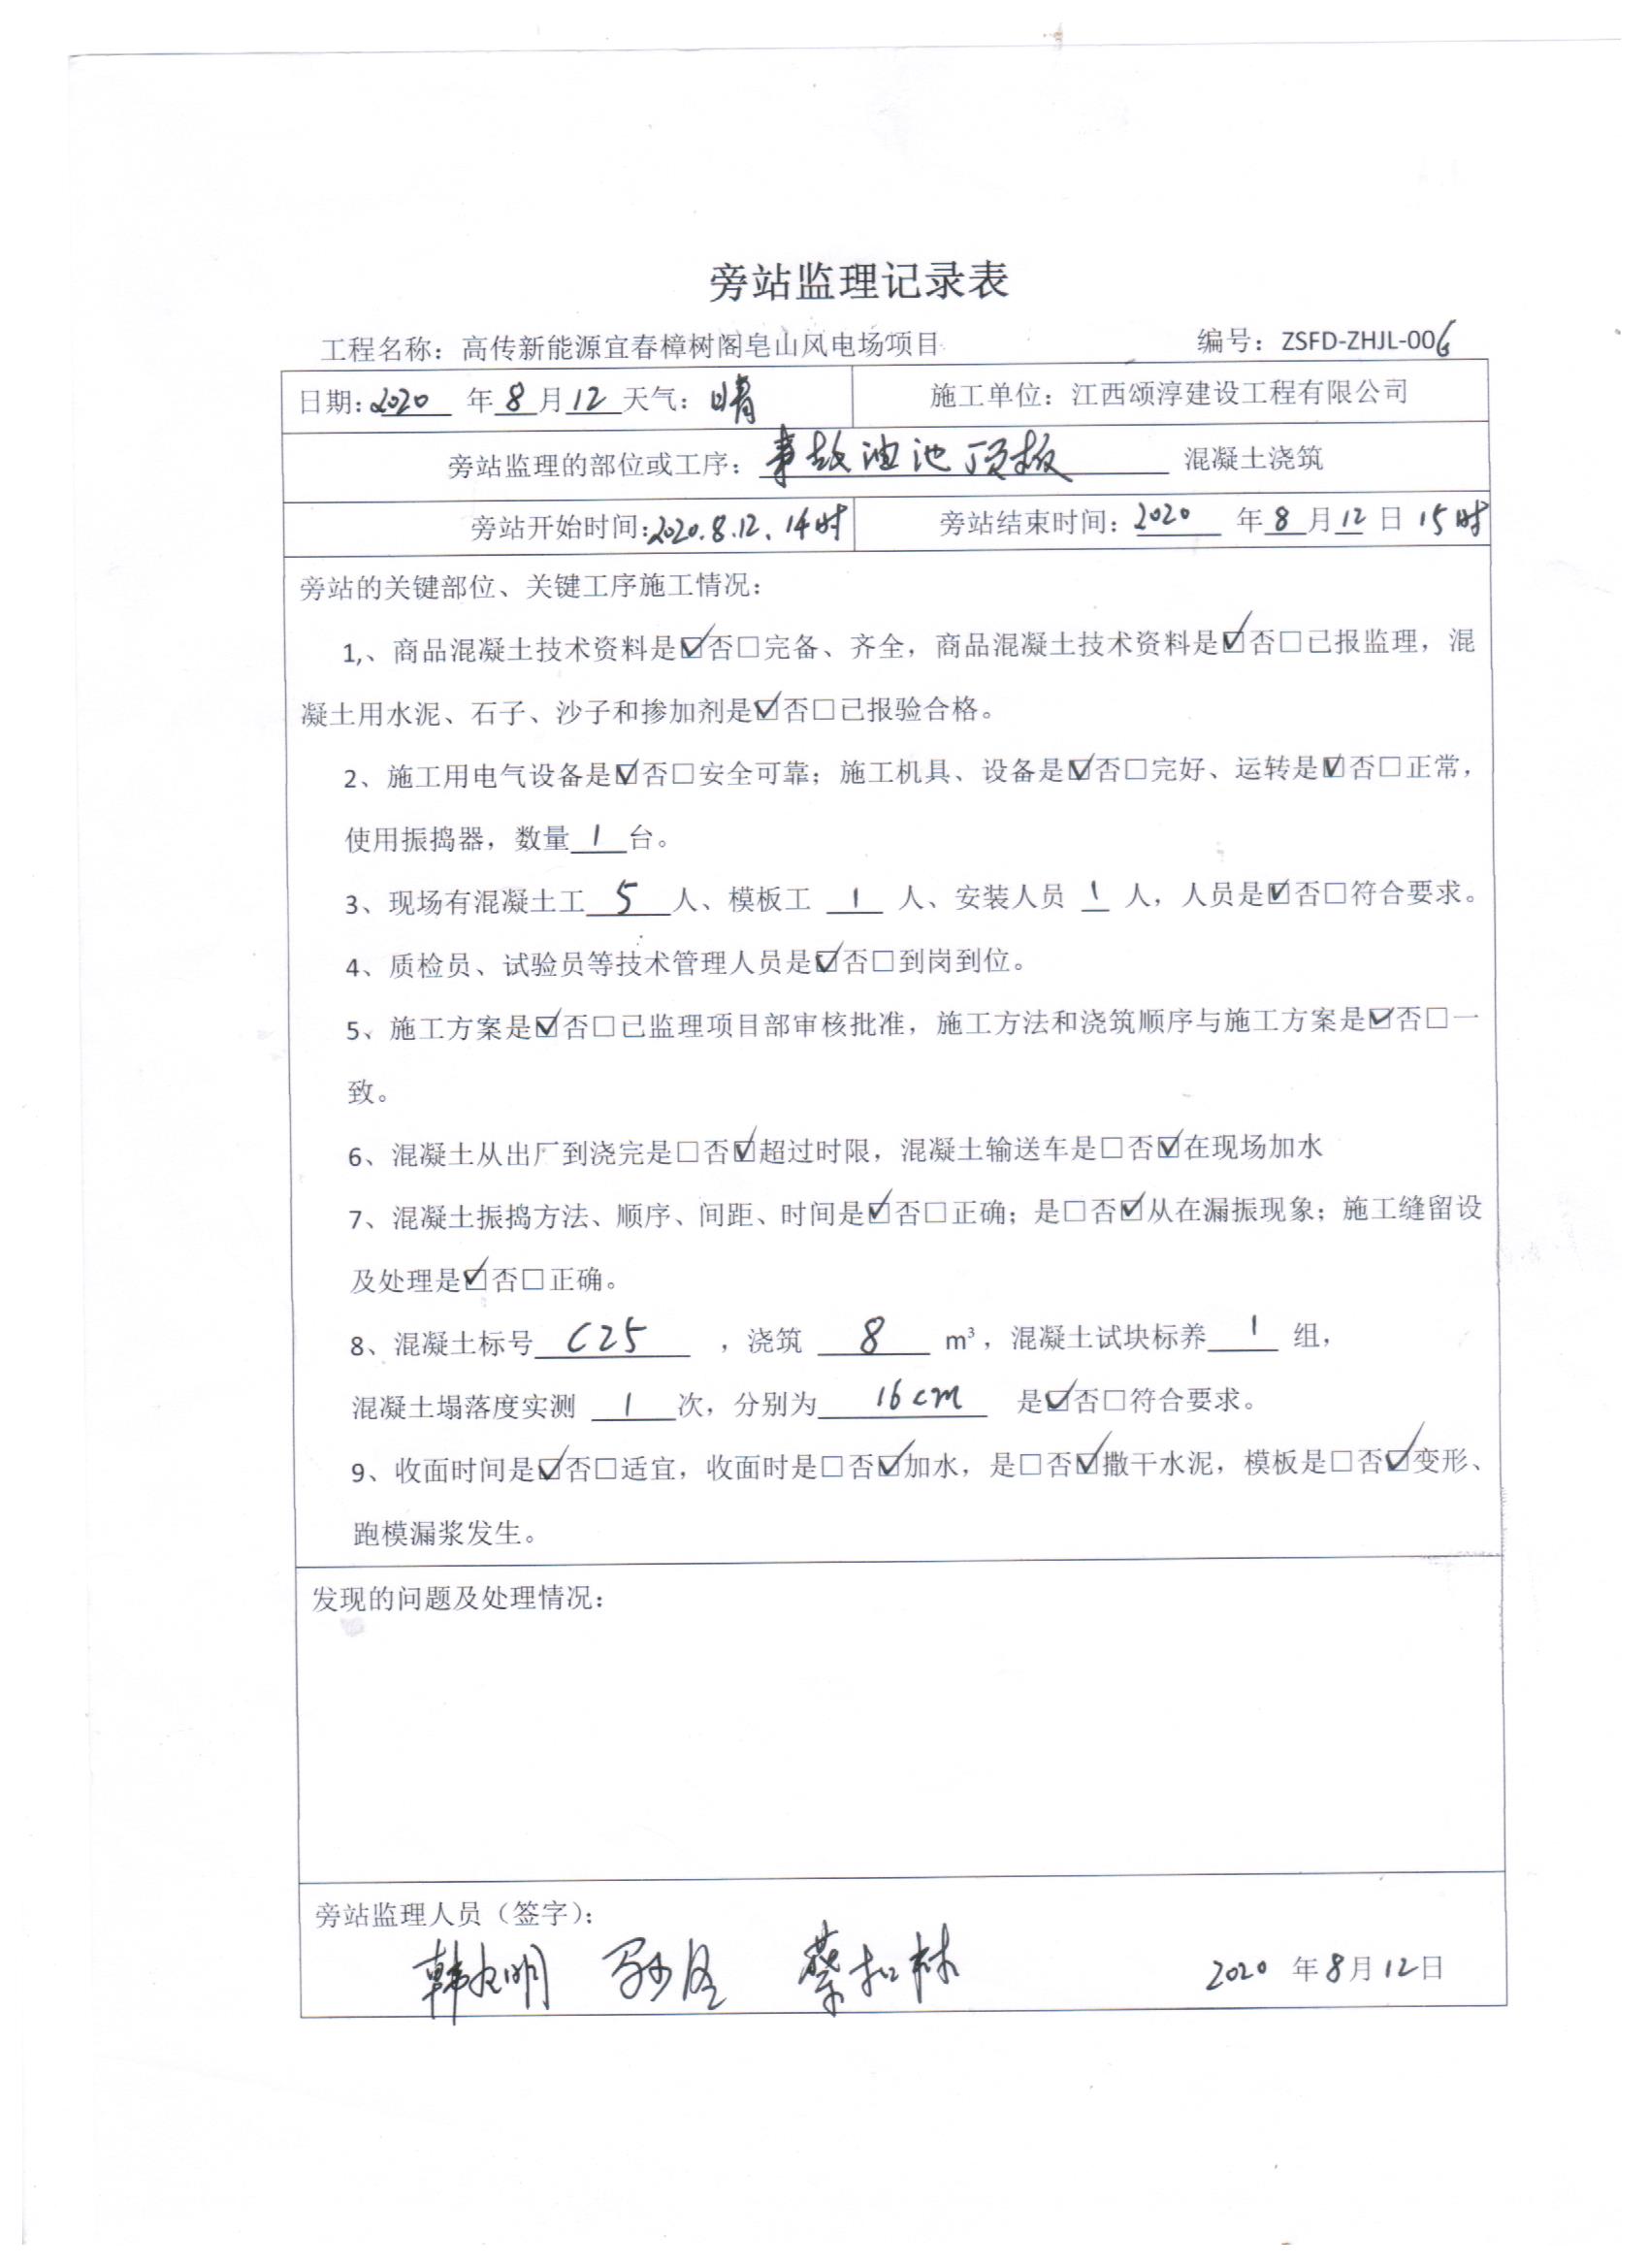 旁站监理记录表
工程名称：高传新能源宜春樟树阁皂山风电场项目 编号：ZSFD-ZHJL-006
日期：2020 年 8 月 12 天气：晴 施工单位：江西颂淳建设工程有限公司
旁站监理的部位或工序：事故油池顶板 混凝土浇筑
旁站开始时间：2020.8.12、14时 旁站结束时间：2020 年 8 月 12 日 15时
旁站的关键部位、关键工序施工情况：
1,、商品混凝土技术资料是☑否□完备、齐全，商品混凝土技术资料是☑否□已报监理，混
凝土用水泥、石子、沙子和掺加剂是☑否□已报验合格。
2、施工用电气设备是☑否□安全可靠；施工机具、设备是☑否□完好、运转是☑否□正常，
使用振捣器，数量 1 台。
3、现场有混凝土工 5 人、模板工 1 人、安装人员 1 人，人员是☑否□符合要求。
4、质检员、试验员等技术管理人员是☑否□到岗到位。
5、施工方案是☑否□已监理项目部审核批准，施工方法和浇筑顺序与施工方案是☑否□一
致。
6、混凝土从出厂到浇完是□否☑超过时限，混凝土输送车是□否☑在现场加水
7、混凝土振捣方法、顺序、间距、时间是☑否□正确；是□否☑从在漏振现象；施工缝留设
及处理是☑否□正确。
8、混凝土标号 C25 ，浇筑 8 m³，混凝土试块标养 1 组，
混凝土塌落度实测 1 次，分别为 16cm 是☑否□符合要求。
9、收面时间是☑否□适宜，收面时是□否☑加水，是□否☑撒干水泥，模板是□否☑变形、
跑模漏浆发生。
发现的问题及处理情况：
旁站监理人员（签字）：
蔡扣林 2020 年 8 月 12 日